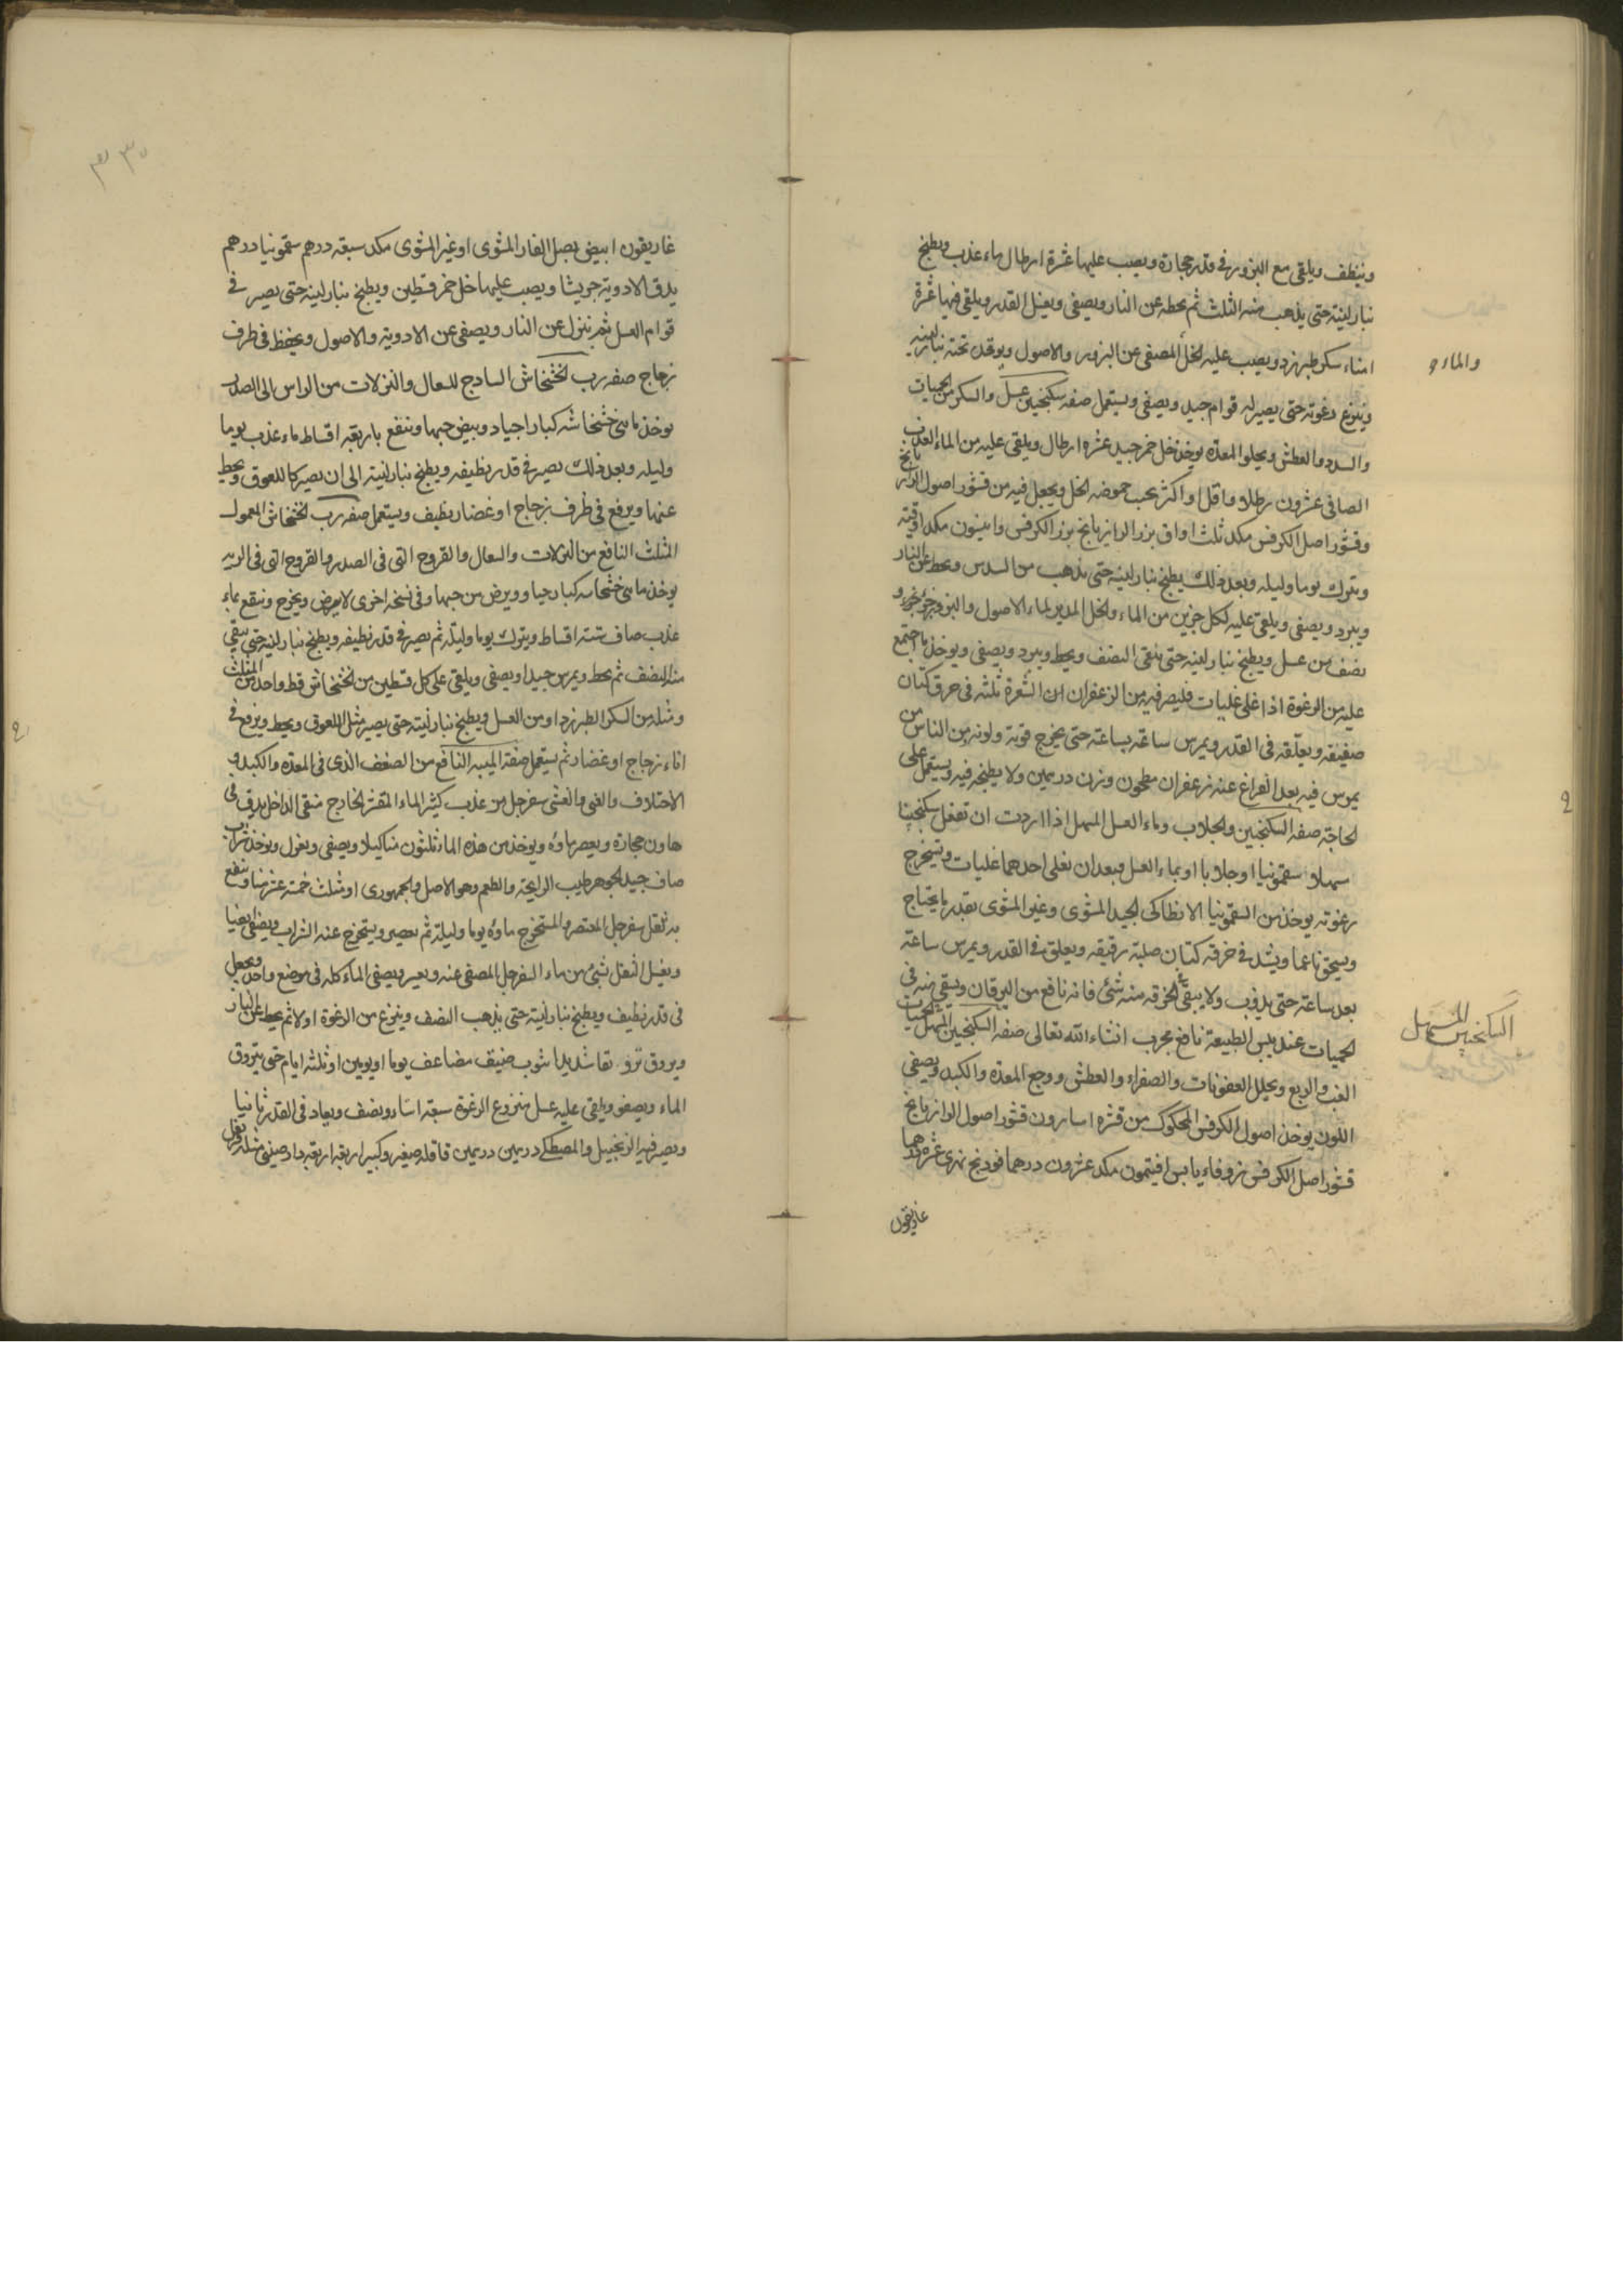 وينظف ويلقى مع البزور في قدر حجارة ويصب عليها عشرة ارطال ماء عذب ويطبخ
بنار لينة حتى يذهب منه الثلث ثم يحطه عن النار ويصفى ويغسل القدر ويلقى فيها عشرة
امناء سكر طبرزد ويصب عليه الخل المصفى عن البزور والاصول ويوقد تحته بنار لينه
والماء
وينزع رغوته حتى يصير له قوام جيد ويصفى ويستعمل صفه سكنجبين عسل والسكر من الحميات
والسدد والعطش ويجلوا المعدة يوخذ خل خمر جيد عشره ارطال ويلقى عليه من الماء العذب
الصافى عشرون رطلا واقل او اكثر بحسب حموضه الخل ويجعل فيه من قشور اصول الرازيانج
وقشور اصل الكرفس مكد ثلث اواق بزر الرازيانج بزر الكرفس وانيسون مكد اوقية
ويترك يوما وليله وبعد ذلك يطبخ بنار لينه حتى يذهب من السدس ويحط عن النار
ويبرد ويصفى ويلقى عليه لكل جزين من الماء والخل المدبر بماء الاصول والبزور جزؤ
نصف من عسل ويطبخ بنار لينه حتى يبقى النصف ويحط ويبرد ويصفى ويوخذ ما اجتمع
عليه من الرغوة اذا غلى غليات فليصر فيه من الزعفران ان الشعرة ثلثه فى خرق كتان
صفيقه ويعلقه فى القدر ويمرس ساعه بساعته حتى يخرج قوته ولونه ومن الناس من
يمرس فيه بعد الفراغ عنه زعفران مطحون وزن درهمين ولا يطبخه فيه ويستعمل على
الحاجة صفه السكنجبين والجلاب وماء العسل المسهل اذا اردت ان تفعل سكنجبينا
مسهلا سقمونيا اوجلابا او بماء العسل فبعد ان تغلى احدهما غليات وتسخرج
رغوته يوخذ من السقمونيا الانطاكى الجيد المشوى وغير المشوى بقدر ما يحتاج
ويسحق ناعما ويشد فى خرقه كتان صلبة رقيقه ويعلق فى القدر ويمرس ساعة
بعد ساعته حتى يذوب ولا يبقى فى الخرقه منه شئ فانه نافع من اليرقان ويسقى منه فى
الحميات عند يبس الطبيعة نافع مجرب انشاء الله تعالى صفه السكنجبين المسهل لحميات
السكنجبين المسهل
الغب والربع ويحلل العفونات والصفراء والعطش ووجع المعدة والكبد ويصفى
اللون يوخذ اصول الكرفس المحكوك من قشره اسارون قشور اصول الرازيانج
قشور اصل الكرفس زوفاء يابس افيتمون مكد عشرون درهما فودنج نهرى عشرة دراهم
غاريقون
غاريقون ابيض بصل الفار المشوى او غير المشوى مكد سبعة درهم سقمونيا درهم
يدق الادوية جريشا ويصب عليها خل خمر قسطين ويطبخ بنار لينه حتى يصير فى
قوام العسل ثم ينزل عن النار ويصفى عن الادوية والاصول ويحفظ فى ظرف
زجاج صفه رب الخشخاش السادج للسعال والنزلات من الراس الى الصدر
يوخذ مائى خشخاشه كبار اجياد وبيض حبها وتنقع باربعة اقساط ماء عذب يوما
وليله وبعد ذلك يصير فى قدر نظيفه ويطبخ بنار لينة الى ان يصير كاللعوق ويحط
عنها ويرفع فى ظرف زجاج او غضار نظيف ويستعمل صفه رب الخشخاش المعمول
المثلث النافع من النزلات والسعال والقروح التى فى الصدر والقروح التى فى الريه
يوخذ مائى خشخاشه كبار جياد ويرض من حبها وفى نسخه اخرى لا يرض ويخرج وينقع بماء
عذب صاف ستة اقساط ويترك يوما وليلة ثم يصير فى قدر نظيفه ويطبخ بنار لينه حتى يبقى
منه النصف ثم يحط ويمرس جيدا ويصفى ويلقى على كل قسطين من الخشخاش قسط واحد من المثلث
ومثله من السكر الطبرزد او من العسل ويطبخ بنار لينة حتى يصير مثل اللعوق ويحط ويرفع فى
اناء زجاج او غضار ثم يستعمل صفة الميبه النافع من الضعف الذى فى المعدة والكبد و
الاختلاف والقى والغشى سفرجل مز عذب كثير الماء المقشر الخارج منقى الداخل يدق فى
هاون حجارة ويعصر ماؤه ويوخذ من هذه الماء ثلثون منا كيلا ويصفى ويعزل ويوخذ شراب
صاف جيد الجوهر طيب الرايحة والطعم وهو الاصل والجمهورى او مثلث خمسة عشر منا وينقع
به ثفل سفرجل المعتصر والمستخرج ماؤه يوما وليلة ثم يعصر ويستخرج عنه الشراب ويصفى ايضا
ويغسل الثفل بشئ من ماء السفرجل المصفى عنه ويعصر ويصفى الماء كله فى موضع واحد ويجعل
فى قدر نظيف ويطبخ بنار لينة حتى يذهب النصف وينزع من الرغوة اولا ثم يحط عن النار
ويروق ترويقا شديدا بثوب صفيق مضاعف يوما او يومين او ثلثه ايام حتى يتروق
الماء ويصفو ويلقى عليه عسل منزوع الرغوة سبعة استار ونصف ويعاد فى القدر ثانيا
ويصير فيه الزنجبيل والمصطكى درهمين درهمين قاقله صغير وكبير اربعة اربعة دارصينى مثله قرنفل